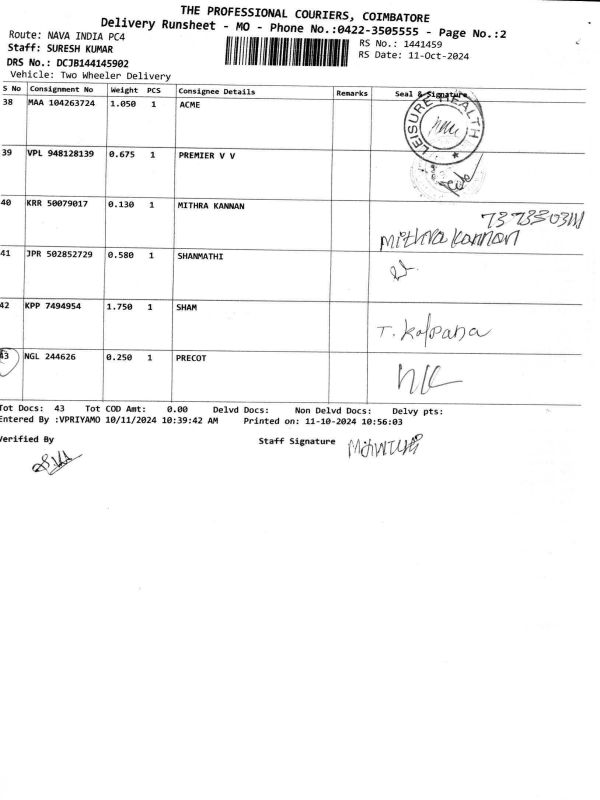 THE PROFESSIONAL COURIERS, COIMBATORE
Delivery Runsheet - MO - Phone No.:0422-3505555 - Page No.:2
Route: NAVA INDIA PC4
RS No.: 1441459
Staff: SURESH KUMAR
RS Date: 11-Oct-2024
DRS No.: DCJB144145902
Vehicle: Two Wheeler Delivery
S No Consignment No Weight PCS Consignee Details Remarks Seal & Signature
38 MAA 104263724 1.050 1 ACME
LEISURE HEALTH
39 VPL 948128139 0.675 1 PREMIER V V
40 KRR 50079017 0.130 1 MITHRA KANNAN
Mithra Kannan
41 JPR 502852729 0.580 1 SHANMATHI
42 KPP 7494954 1.750 1 SHAM
T. Kalpana
43 NGL 244626 0.250 1 PRECOT
Tot Docs: 43 Tot COD Amt: 0.00 Delvd Docs: Non Delvd Docs: Delvy pts:
Entered By :VPRIYAMO 10/11/2024 10:39:42 AM Printed on: 11-10-2024 10:56:03
Verified By Staff Signature